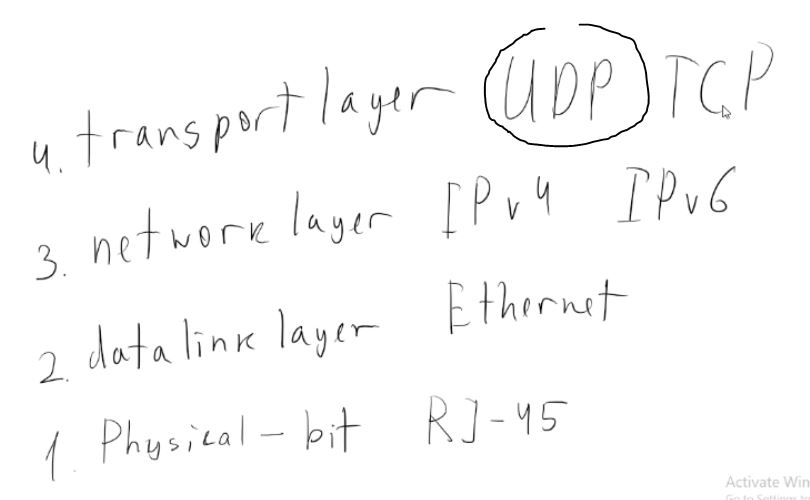 4. transport layer UDP TCP
3. network layer IPv4 IPv6
2. data link layer Ethernet
1. Physical - bit RJ-45
Activate Win